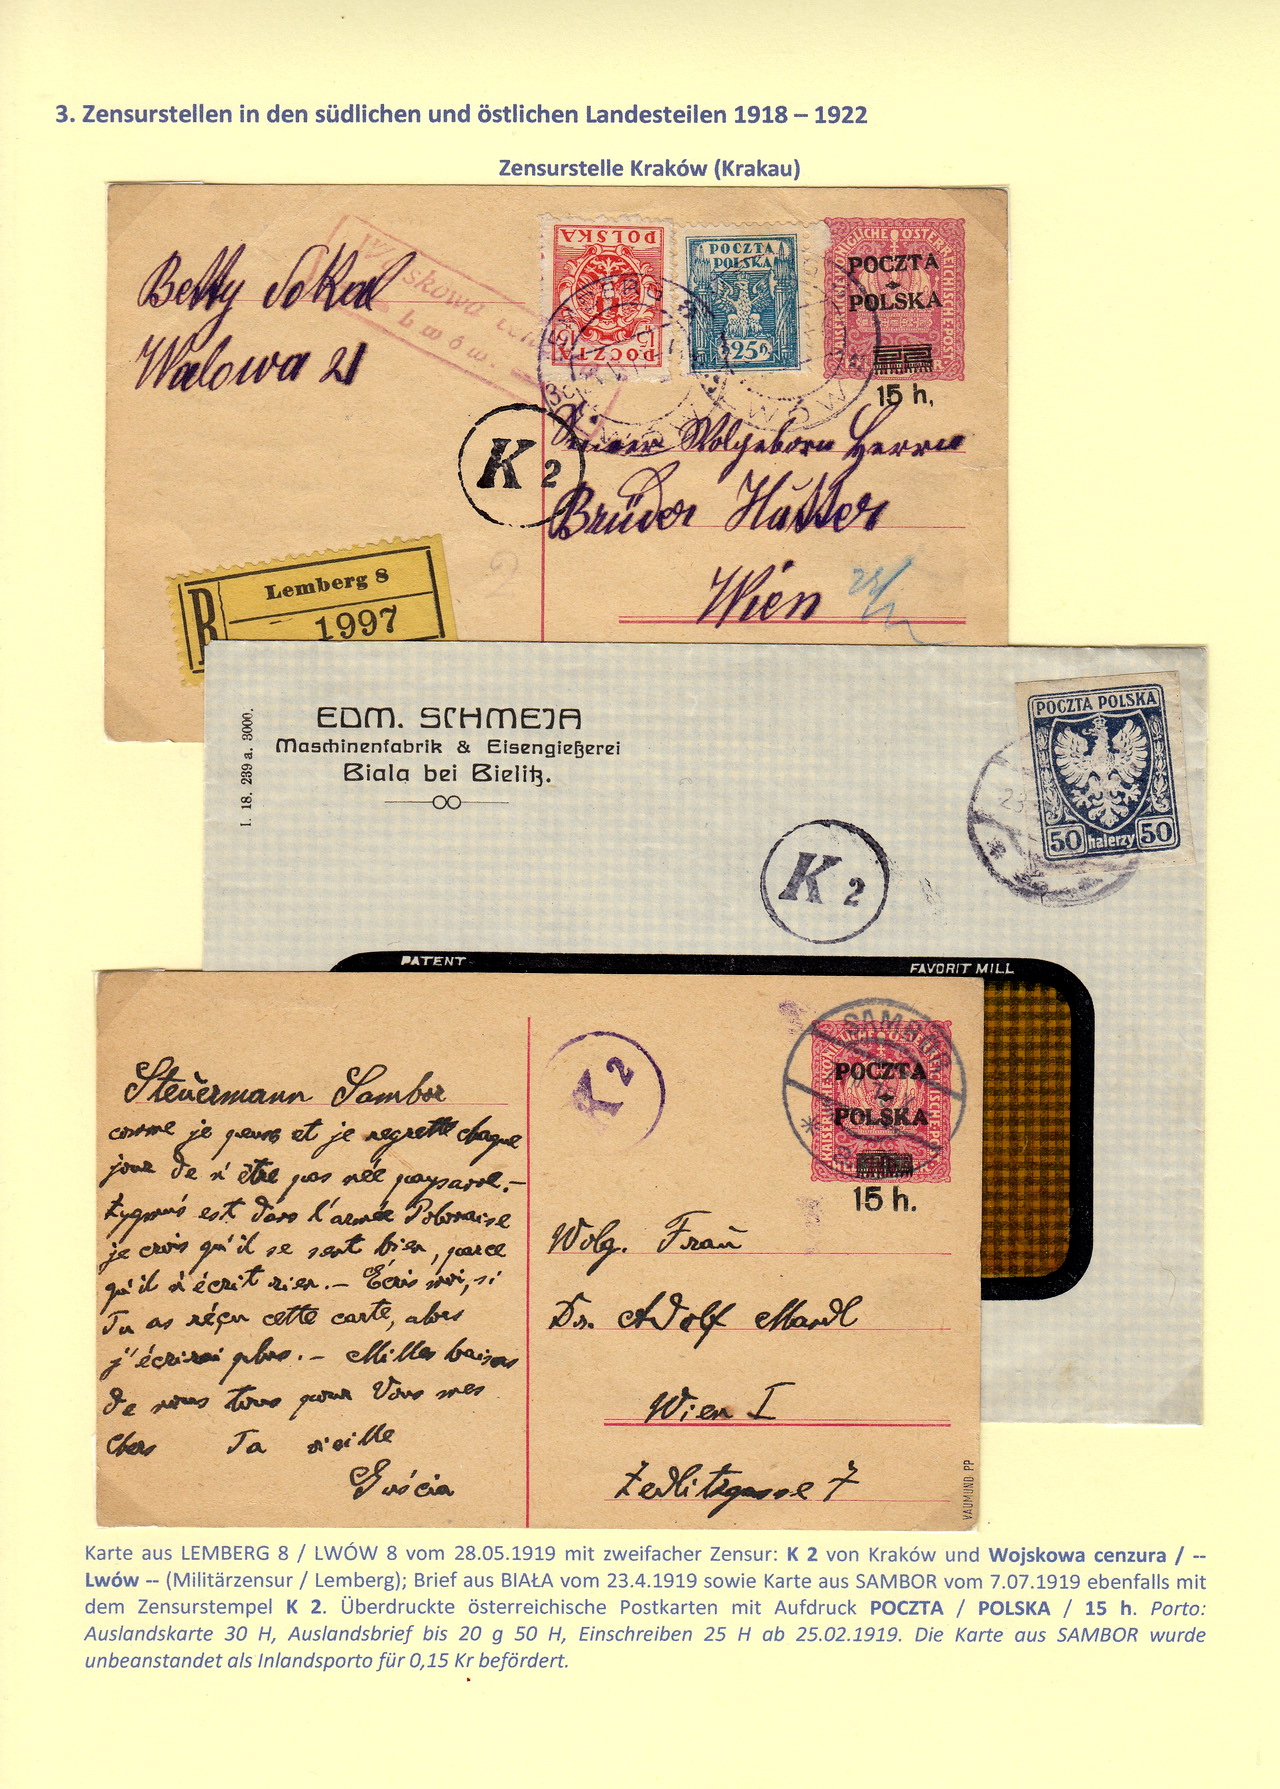 3. Zensurstellen in den südlichen und östlichen Landesteilen 1918 – 1922
Zensurstelle Kraków (Krakau)
Betty Sokal
Walowa 21
Wojskowa
Lwów.
POCZTA
POLSKA
15
POCZTA
POLSKA
25
KAISERLICHE KÖNIGLICHE ÖSTERREICHISCHE POST
POCZTA
POLSKA
15 h.
LEMBERG 8
LWÓW
K 2
Seiner Wolgeborn Herrn
Brüder Hütter
Wien
2
R
Lemberg 8
1997
I. 18. 239 a. 3000.
EDM. SCHMEJA
Maschinenfabrik & Eisengießerei
Biala bei Bielitz.
POCZTA POLSKA
50 halerzy 50
23
K 2
PATENT
FAVORIT MILL
K 2
SAMBOR
KAISERLICHE KÖNIGLICHE ÖSTERREICHISCHE POST
POCZTA
POLSKA
15 h.
Steuermann Sambor
comme je peux et je regrette chaque
jour de n'être pas née paysanne.–
Zygmuś est dans l'armée Polonaise
je crois qu'il se sent bien, parce
qu'il n'écrit rien.– Écris moi, si
Tu as réçu cette carte, alors
j'écrirai plus.– Milles baisers
de nous tous pour Vous mes
chers Ta vieille
Gościa
Wolg. Frau
Dr. Adolf Mandl
Wien I
Zedlitzgasse 7
VAUMUND PP
Karte aus LEMBERG 8 / LWÓW 8 vom 28.05.1919 mit zweifacher Zensur: K 2 von Kraków und Wojskowa cenzura / --
Lwów -- (Militärzensur / Lemberg); Brief aus BIAŁA vom 23.4.1919 sowie Karte aus SAMBOR vom 7.07.1919 ebenfalls mit
dem Zensurstempel K 2. Überdruckte österreichische Postkarten mit Aufdruck POCZTA / POLSKA / 15 h. Porto:
Auslandskarte 30 H, Auslandsbrief bis 20 g 50 H, Einschreiben 25 H ab 25.02.1919. Die Karte aus SAMBOR wurde
unbeanstandet als Inlandsporto für 0,15 Kr befördert.